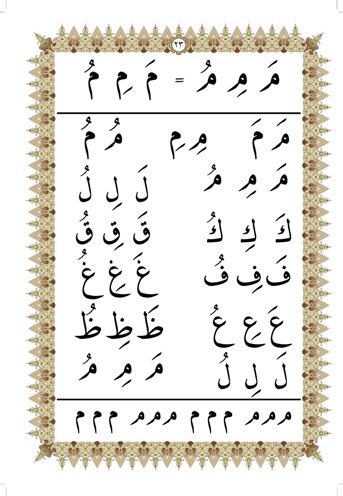 ٢٣
مَ مِ مُ = مَ مِ مُ
مَ مَ مِ مِ مُ مُ
مَ مِ مُ لَ لِ لُ
كَ كِ كُ قَ قِ قُ
فَ فِ فُ غَ غِ غُ
عَ عِ عُ ظَ ظِ ظُ
لَ لِ لُ مَ مِ مُ
م م م م م م م م م م م م